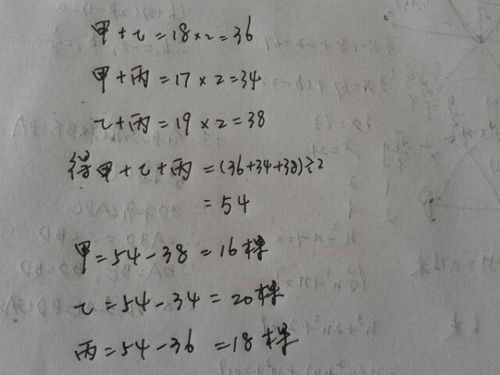 甲+乙=18×2=36
甲+丙=17×2=34
乙+丙=19×2=38
得甲+乙+丙=(36+34+38)÷2
=54
甲=54-38=16棵
乙=54-34=20棵
丙=54-36=18棵